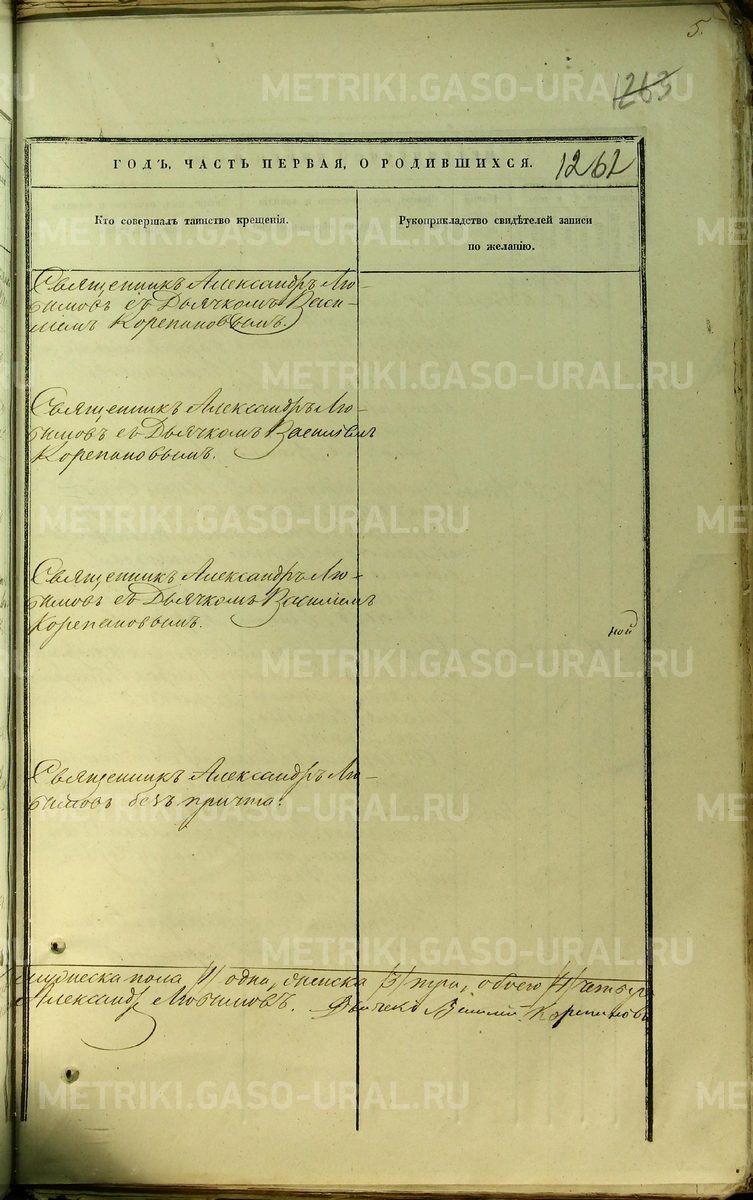 5.
1263
ГОДЪ, ЧАСТЬ ПЕРВАЯ, О РОДИВШИХСЯ.
1262
Кто совершалъ таинство крещенія.
Рукоприкладство свидѣтелей записи
по желанію.
Священникъ Александръ Лю-
бимовъ съ Дьячкомъ Васи-
ліемъ Корепановымъ.
Священникъ Александръ Лю-
бимовъ съ Дьячкомъ Василіемъ
Корепановымъ.
Священникъ Александръ Лю-
бимовъ съ Дьячкомъ Василіемъ
Корепановымъ.
ной
Священникъ Александръ Лю-
бимовъ безъ причта.
мужеска пола /1/ одно, женска /3/ три, обоего /4/ четыре
Александръ Любимовъ. Дьячекъ Василій Корепановъ
METRIKI.GASO-URAL.RU